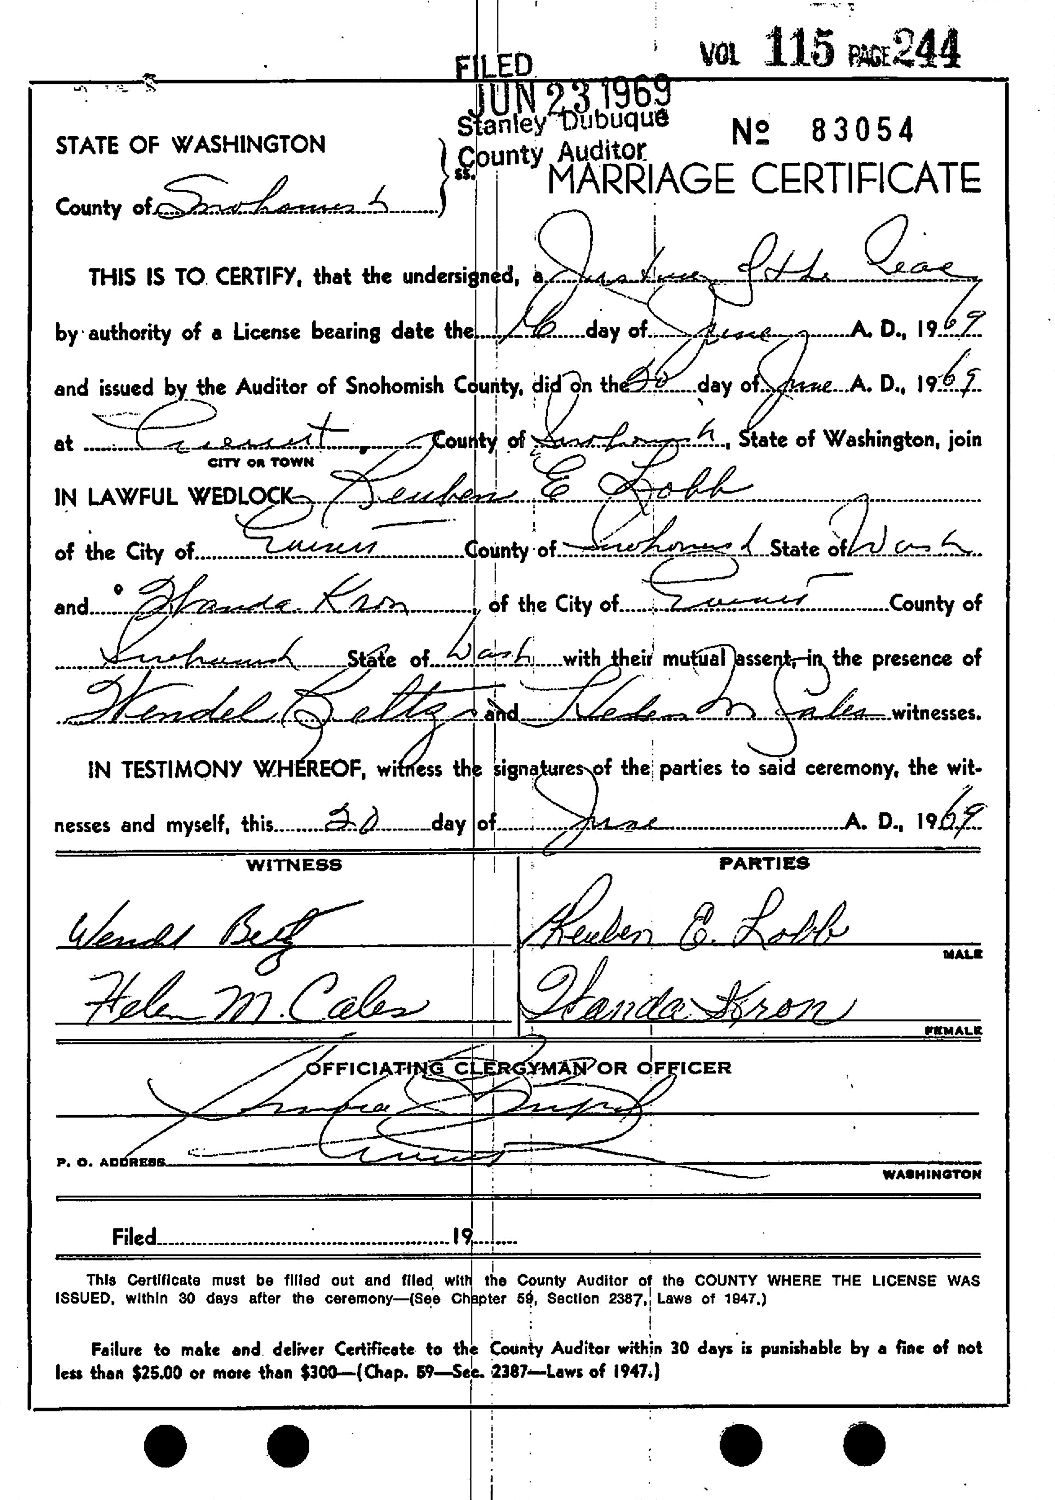 VOL 115 PAGE 244
FILED
JUN 23 1969
Stanley Dubuque
County Auditor
STATE OF WASHINGTON
County of Snohomish
ss.
No 83054
MARRIAGE CERTIFICATE
THIS IS TO CERTIFY, that the undersigned, a Justice of the Peace
by authority of a License bearing date the 16 day of June A. D., 1969
and issued by the Auditor of Snohomish County, did on the 20 day of June A. D., 1969
at Everett, County of Snohomish, State of Washington, join
CITY OR TOWN
IN LAWFUL WEDLOCK Reuben E Lobb
of the City of Everett County of Snohomish State of Wash
and Wanda Kron, of the City of Everett County of
Snohomish State of Wash with their mutual assent, in the presence of
Wendel Beltz and Helen M Cales witnesses.
IN TESTIMONY WHEREOF, witness the signatures of the parties to said ceremony, the wit-
nesses and myself, this 20 day of June A. D., 1969
WITNESS PARTIES
Wendel Beltz Reuben E. Lobb
MALE
Helen M. Cales Wanda Kron
FEMALE
OFFICIATING CLERGYMAN OR OFFICER
P. O. ADDRESS Everett
WASHINGTON
Filed 19
This Certificate must be filled out and filed with the County Auditor of the COUNTY WHERE THE LICENSE WAS
ISSUED, within 30 days after the ceremony—(See Chapter 59, Section 2387, Laws of 1947.)
Failure to make and deliver Certificate to the County Auditor within 30 days is punishable by a fine of not
less than $25.00 or more than $300—(Chap. 59—Sec. 2387—Laws of 1947.)